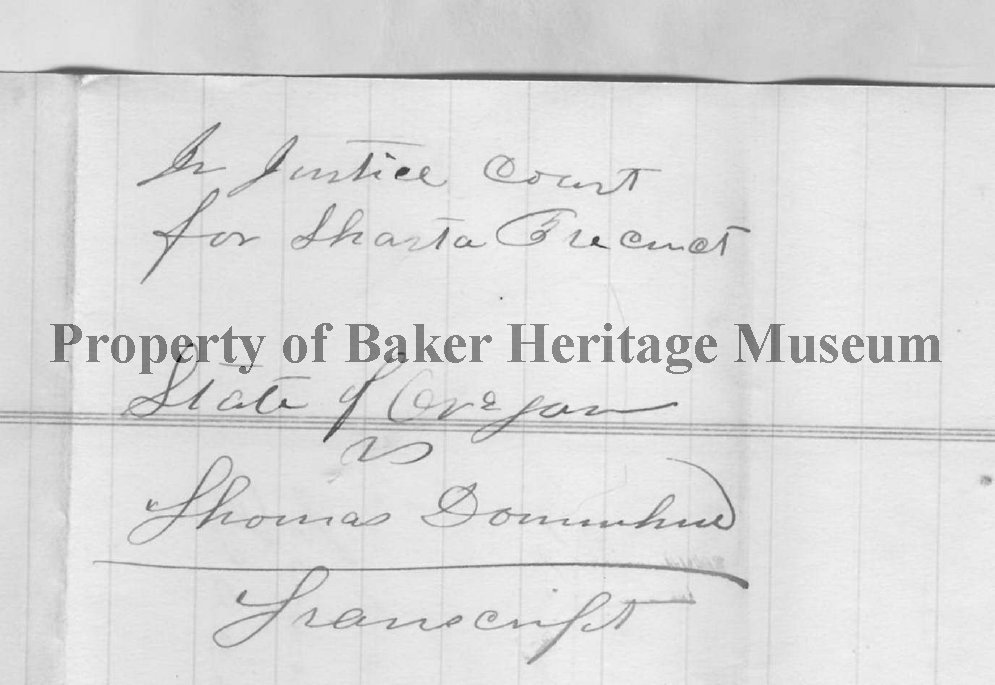 In Justice Court
for Shasta Precinct
Property of Baker Heritage Museum
State of Oregon
vs
Thomas
Transcript